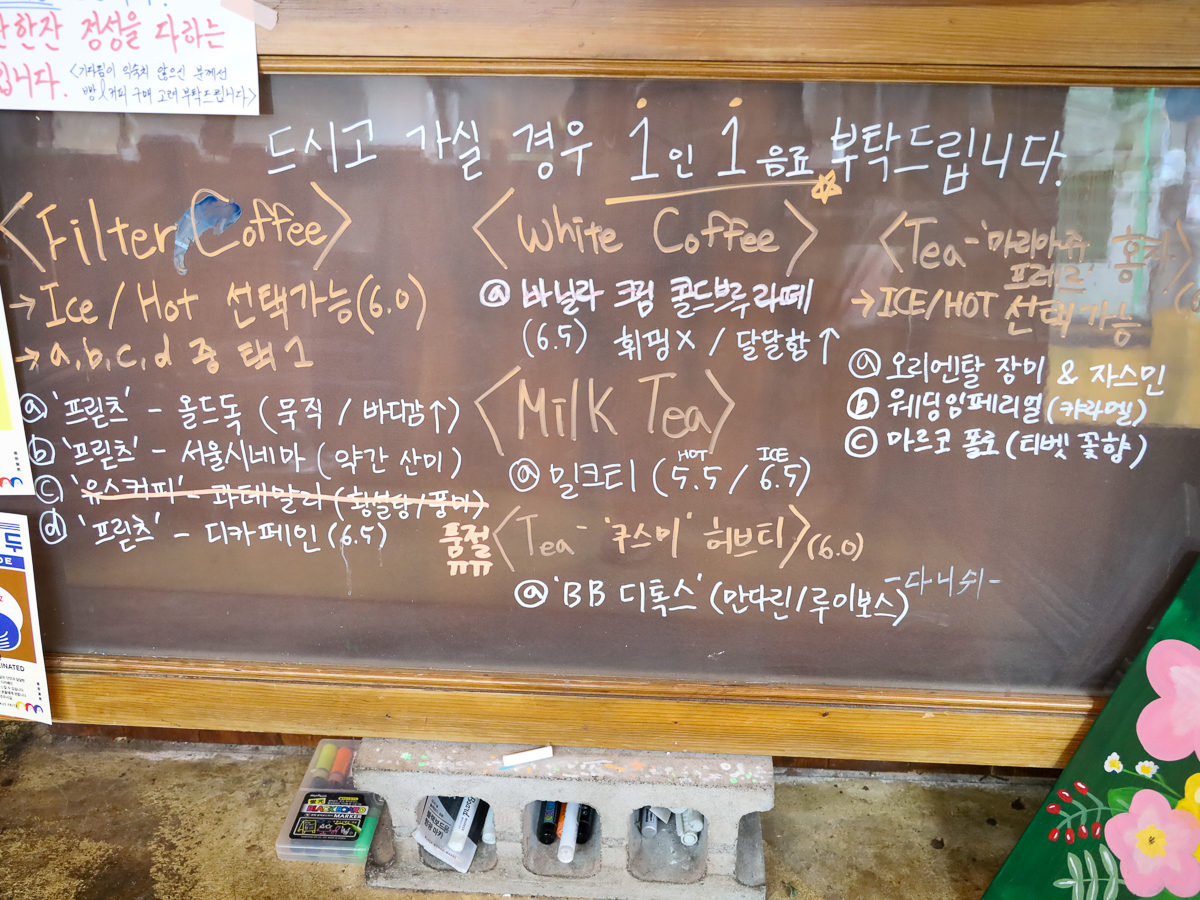 한잔 정성을 다하는
입니다. <기다림이 익숙치 않으신 분께선
빵&커피 구매 고려 부탁드립니다>
드시고 가실 경우 1인 1 음료 부탁드립니다.
<Filter Coffee>
→ Ice / Hot 선택가능(6.0)
→ a, b, c, d 중 택 1
ⓐ '프릳츠' - 올드독 (묵직 / 바디감↑)
ⓑ '프릳츠' - 서울시네마 (약간 산미)
ⓒ '유스커피' - 과테말라 (황설탕/풍미)
ⓓ '프릳츠' - 디카페인 (6.5)
품절
ㅠㅠ
<White Coffee>
ⓐ 바닐라 크림 콜드브루 라떼
(6.5) 휘핑X / 달달함↑
<Milk Tea>
ⓐ 밀크티 (HOT 5.5 / ICE 6.5)
<Tea - '쿠스미' 허브티> (6.0)
ⓐ 'BB 디톡스' (만다린/루이보스)
-다니쉬-
<Tea - '마리아쥬
프레르' 홍차>
→ ICE/HOT 선택가능
ⓐ 오리엔탈 장미 & 자스민
ⓑ 웨딩임페리얼 (캬라멜)
ⓒ 마르코 폴로 (티벳 꽃향)
BLACKBOARD
MARKER